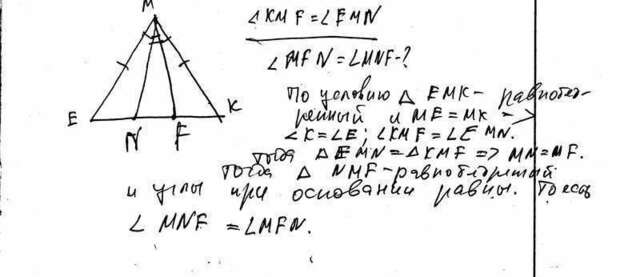 M
∠KMF = ∠EMN
∠MFN = ∠MNF-?
E N F K
По условию △ EMK - равнобед-
ренный и ME = MK ->
∠K = ∠E; ∠KMF = ∠EMN.
тогда △EMN = △KMF => MN = MF.
Тогда △ NMF - равнобедренный
и углы при основании равны. То есть
∠ MNF = ∠MFN.